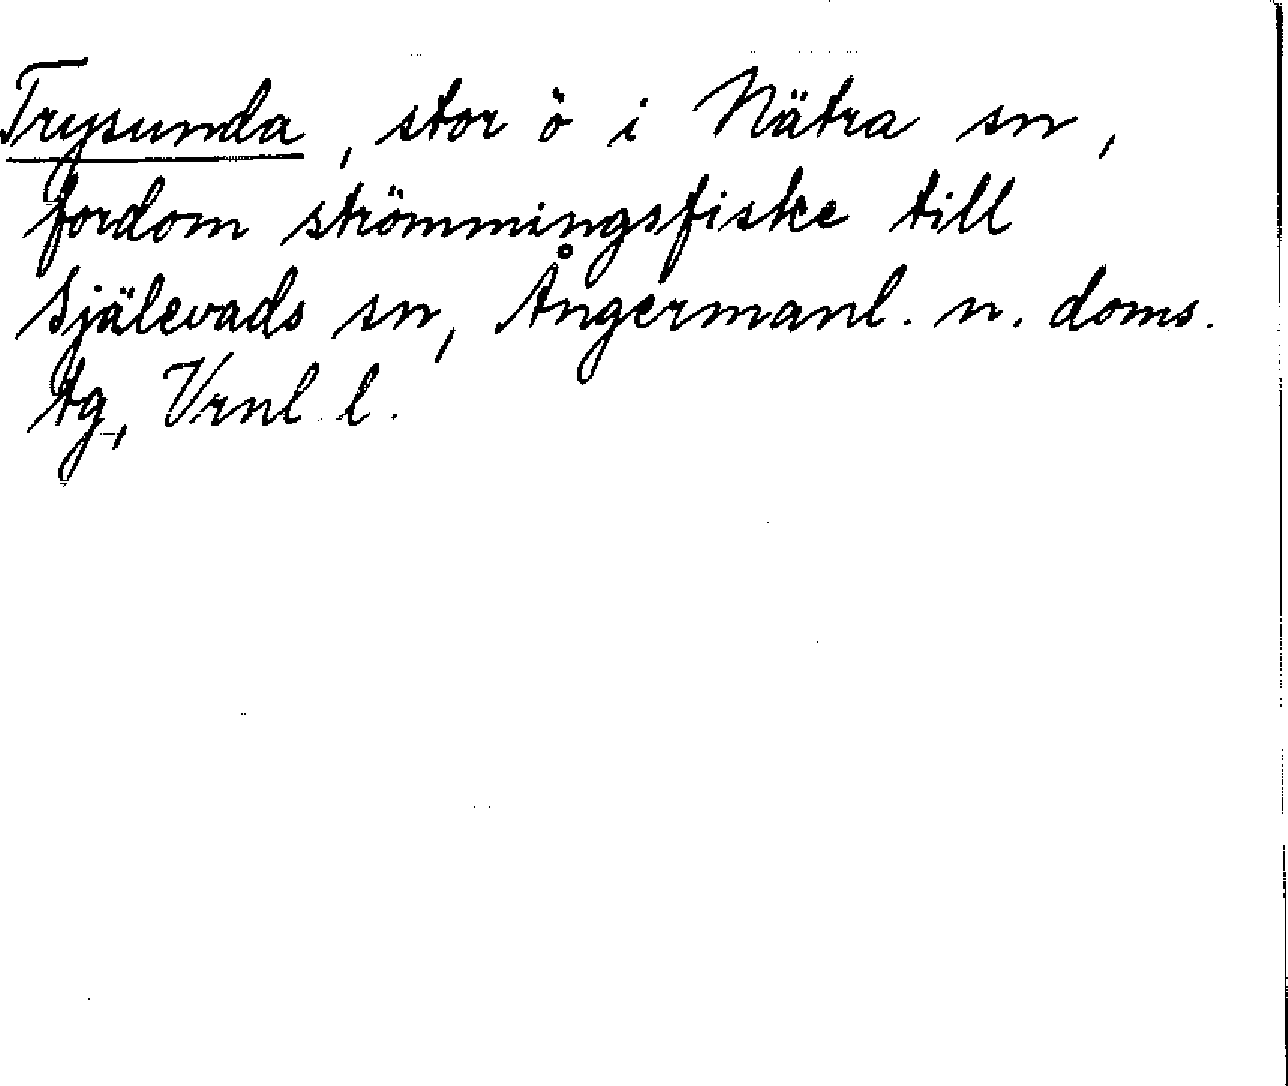 Trysunda, stor ö i Nätra sn,
fordom strömmingsfiske till
Själevads sn, Ångermanl. n. doms.
tg, Vrnl l.